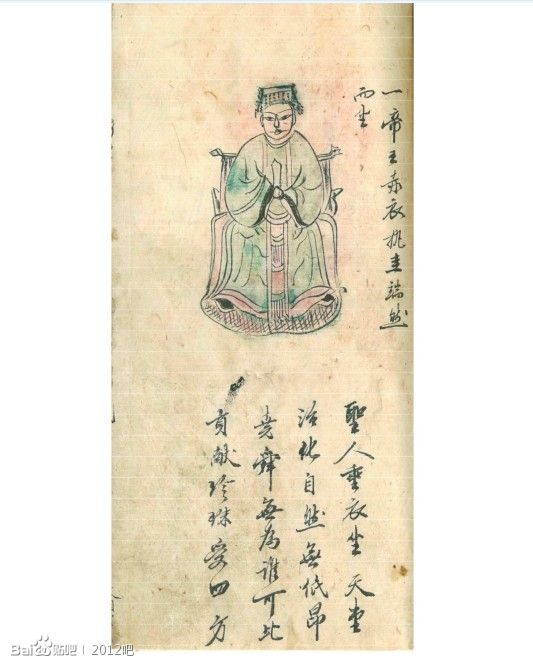 一帝王赤衣执圭端然
而坐
聖人垂衣坐天堂
治化自然無低昂
堯舜無為誰可比
貢献珍珠安四方
Bai贴吧 | 2012吧